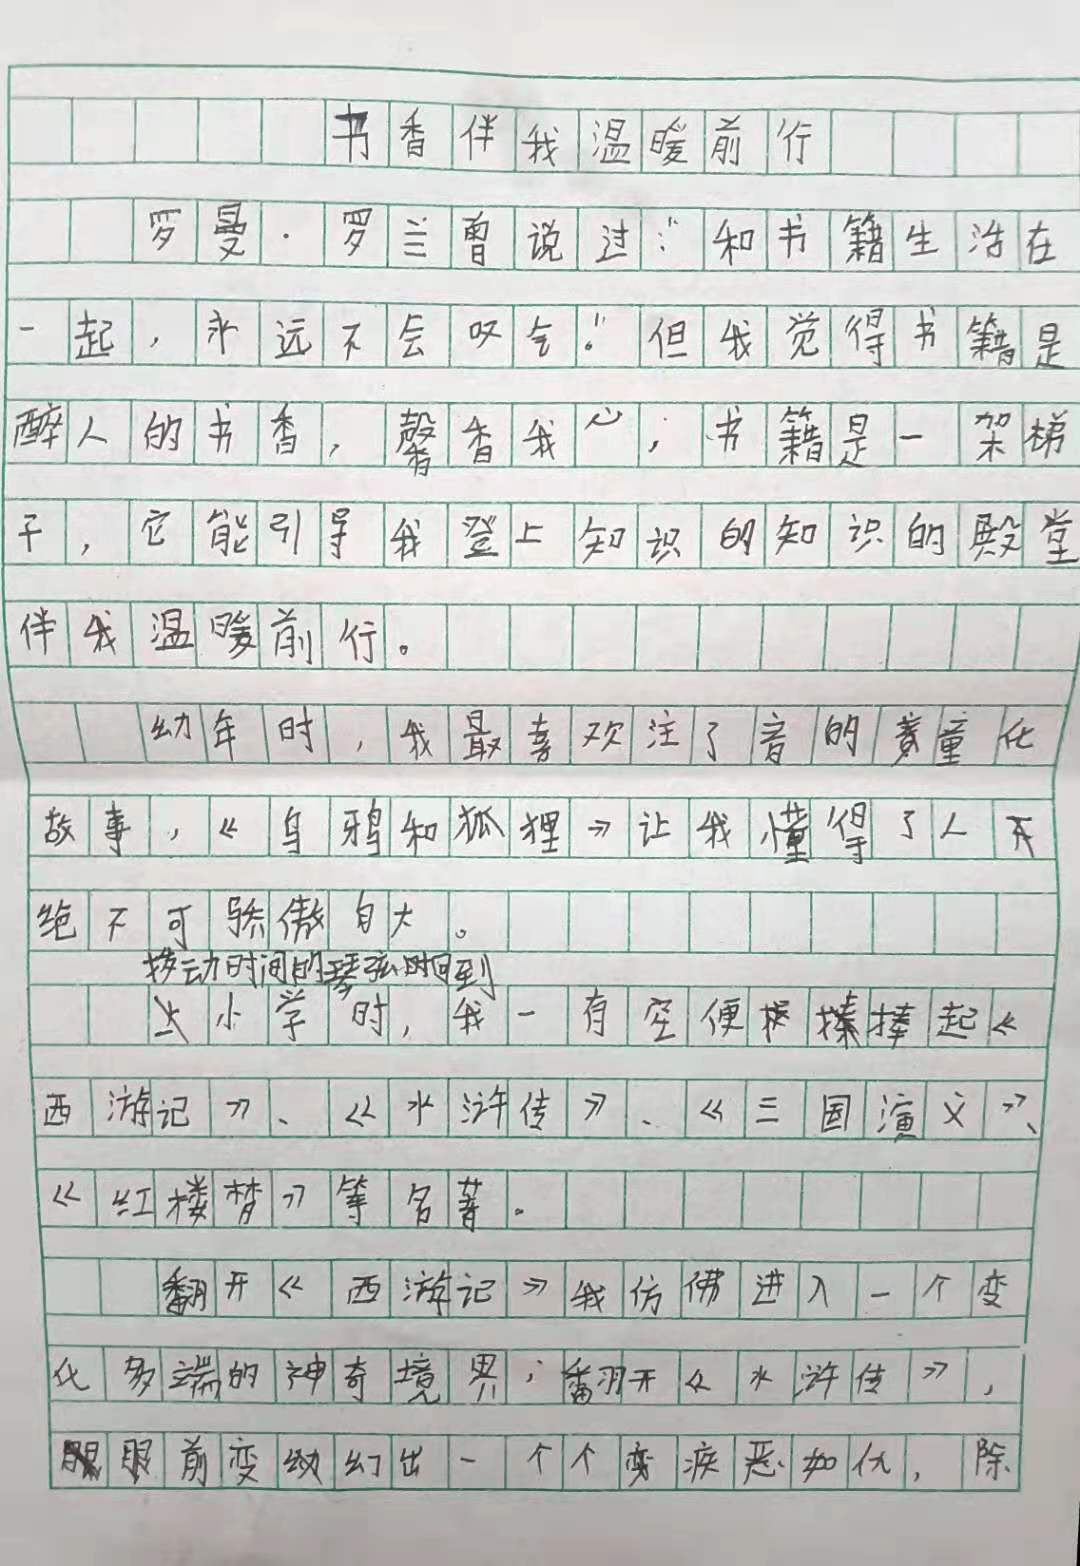 书香伴我温暖前行
罗曼·罗兰曾说过:"和书籍生活在
一起,永远不会叹气!"但我觉得书籍是
醉人的书香,馨香我心;书籍是一架梯
子,它能引导我登上知识的知识的殿堂
伴我温暖前行。
幼年时,我最喜欢注了音的童化
故事,《乌鸦和狐狸》让我懂得了人
绝不可骄傲自大。
拨动时间的琴弦时间到
上小学时,我一有空便捧起《
西游记》、《水浒传》、《三国演义》、
《红楼梦》等名著。
翻开《西游记》我仿佛进入一个变
化多端的神奇境界;翻开《水浒传》,
眼前变幻出一个个疾恶如仇,除